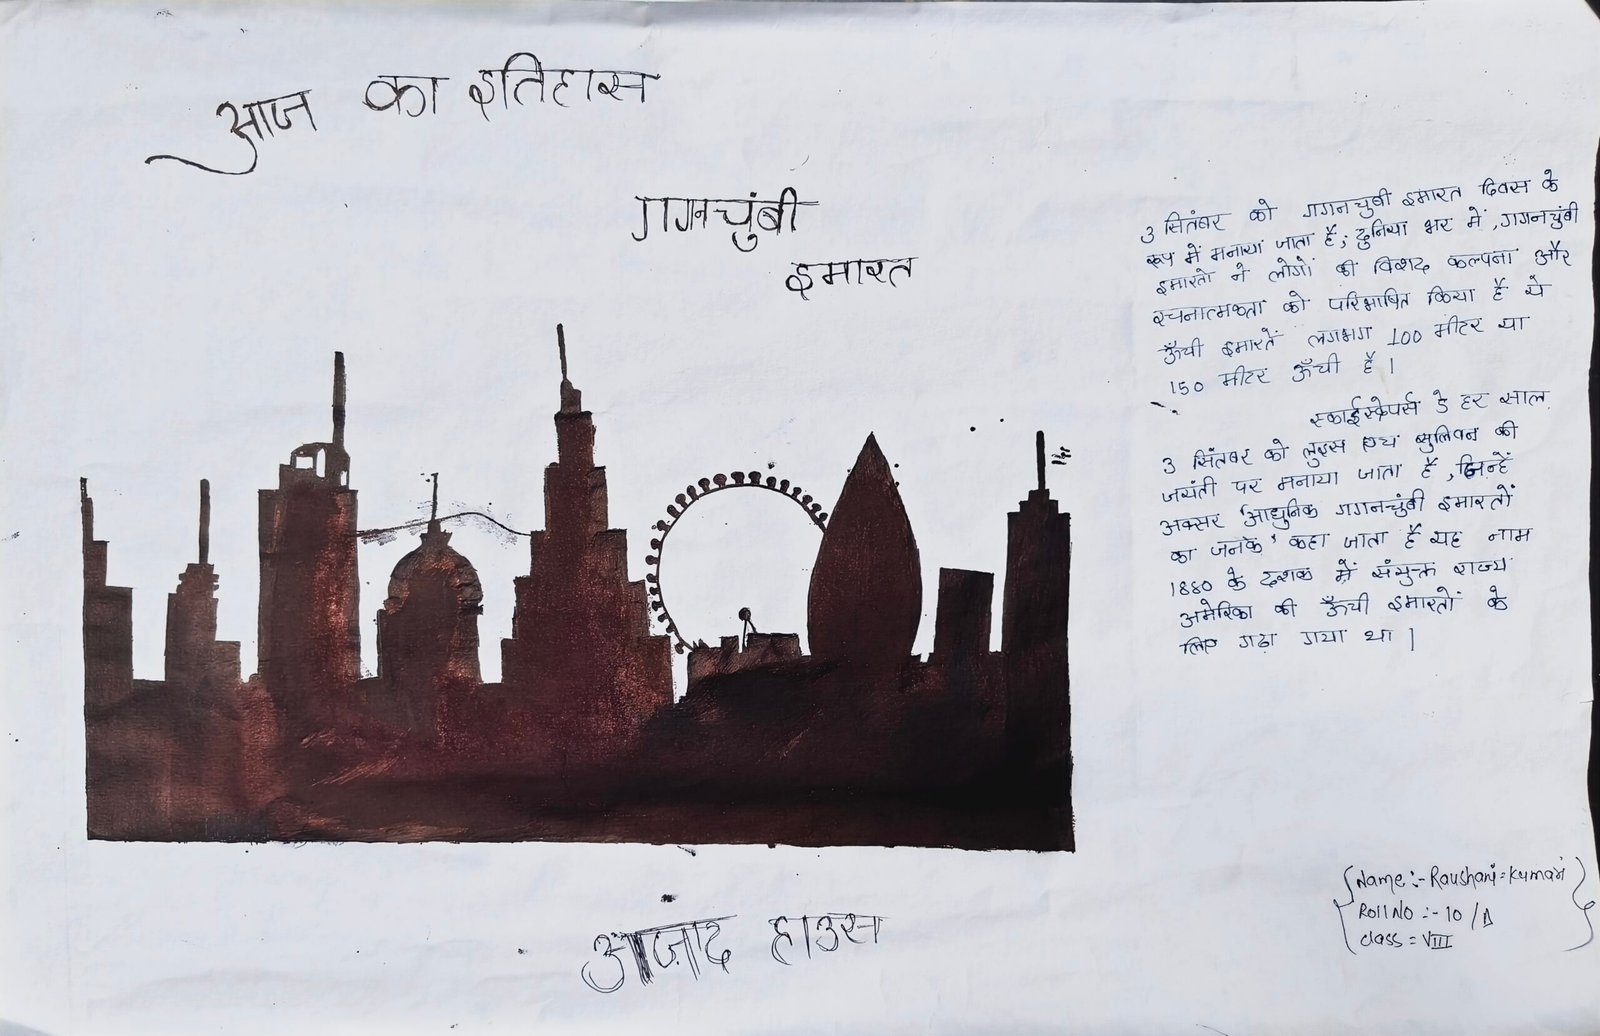 आज का इतिहास
गगनचुंबी
इमारत
3 सितंबर को गगनचुंबी इमारत दिवस के
रूप में मनाया जाता है; दुनिया भर में, गगनचुंबी
इमारतो ने लोगों की विशद कल्पना और
रचनात्मकता को परिभाषित किया है ये
ऊँची इमारतें लगभग 100 मीटर या
150 मीटर ऊँची है।
स्काईस्क्रेपर्स डे हर साल
3 सितंबर को लुइस एच सुलिवन की
जयंती पर मनाया जाता है, जिन्हें
अक्सर "आधुनिक गगनचुंबी इमारतों
का जनक" कहा जाता है यह नाम
1880 के दशक में संयुक्त राज्य
अमेरिका की ऊँची इमारतों के
लिए गढ़ा गया था।
आज़ाद हाउस
Name :- Raushani Kumari
Roll No :- 10 / A
Class = VIII